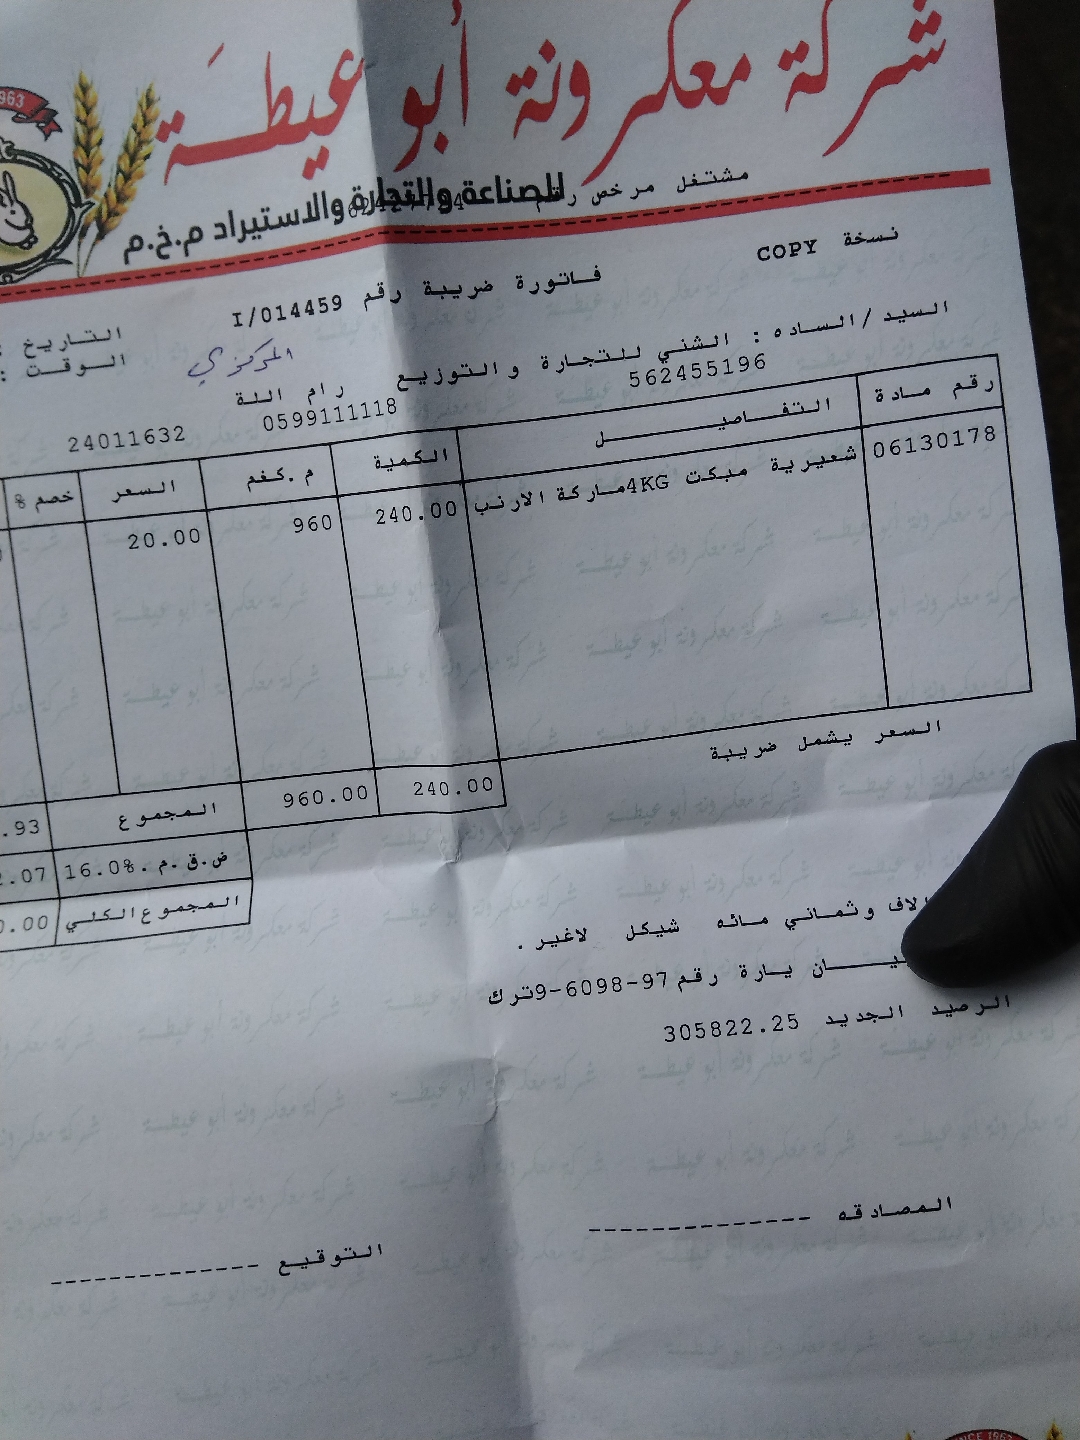 1963
شركة معكرونة أبو عيطة
للصناعة والتجارة والاستيراد م.خ.م
مشتغل مرخص رقم
نسخة COPY
فاتورة ضريبة رقم I/014459
التاريخ :
السيد/الساده : الشني للتجارة والتوزيع
المركزي
الوقت :
562455196
رام اللة
0599111118
24011632
رقم مادة التفاصيل الكمية م.كغم السعر خصم %
06130178 شعيرية مبكت 4KG ماركة الارنب 240.00 960 20.00
السعر يشمل ضريبة
240.00 960.00 المجموع .93
ض.ق.م .16.0% .07
المجموع الكلي .00
وثماني مائه شيكل لاغير .
يارة رقم 9-6098-97 ترك
الرصيد الجديد 305822.25
المصادقه --------------
التوقيع --------------
SINCE 1963